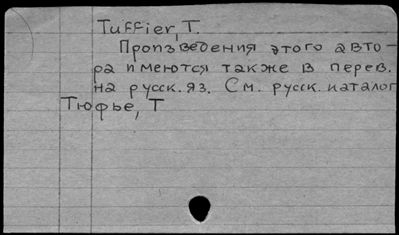 Tuffier, T.
Произведения этого авто-
ра имеются также в перев.
на русск. яз. См. русск. каталог
Тюфье, Т